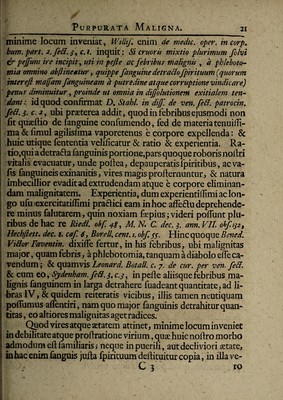 PURPURATA MALIGNA. 21
minime locum inveniat, Wellis. enim de medic. oper. in corp.
hum. part. 2. sect. 3, c. 1. inquit: Si cruoris mixtio plurimum solvi
& pessum ire incipit, uti in peste ac febribus malignis, à phleboto-
mia omnino abstineatur, quippe sanguine detracto spirituum (quorum
interest massam sanguineam à putredine atque corruptione vindicare)
penus diminuitur, proinde ut omnia in dissolutionem exitialem ten-
dant: id quod confirmat D. Stahl. in diss. de ven. sect. patrocin.
sect. 3. c. 2, ubi præterea addit, quod in febribus ejusmodi non
sit quæstio de sanguine consumendo, sed de materia tenuissi-
ma & simul agilissima vaporetenus è corpore expellenda: &
huic utique sententia velificatur & ratio & experientia. Ra-
tio, qui a detracta sanguinis portione, pars quoque roboris nostri
vitalis evacuatur, unde postea, depauperatis spiritibus, ac va-
sis sanguineis exinanitis, vires magis prosternuntur, & natura
imbecillior evadit ad extrudendam atque è corpore eliminan-
dam malignitatem. Experientia, dum experientissimi ac lon-
go usu exercitatissimi practici eam in hoc affectu deprehende-
re minus salutarem, quin noxiam sæpius; videri possunt plu-
ribus de hac re Riedl. obs. 48, M. N. C. dec. 3. ann. VII. obs. 132,
Hechstett. dec. 1. cas. 8, Borell. cent. 1. obs. 75. Hincque quoque Bened.
Victor Faventin. dixisse fertur, in his febribus, ubi malignitas
major, quam febris, à phlebotomia, tanquam à diabolo esse ca-
vendum; & quamvis Leonard. Botall. c. 7. de cur. per ven. sect.
& cum eo, Sydenham. sect. 3, c. 3. in peste aliisque febribus ma-
lignis sanguinem in larga detrahere suadeant quantitate, ad li-
bras IV, & quidem reiteratis vicibus, illis tamen neutiquam
possumus assentiri, nam quo major sanguinis detrahitur quan-
titas, eo altiores malignitas aget radices.
Quod vires atque ætatem attinet, minime locum inveniet
in debilitate atque prostratione virium, quæ huic nostro morbo
admodum est familiaris; neque in puerili, aut decliviori ætate,
in hac enim sanguis justa spirituum destituitur copia, in illa ve-
C 3 ro